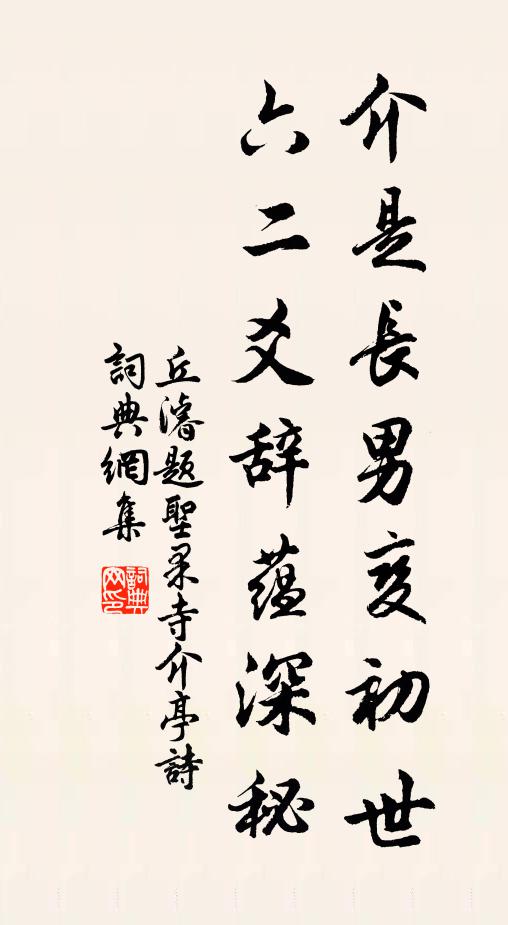 介是長男变初世
六二爻辞蕴深秘
丘濬题聖果寺介亭詩
詞典網集
詞典
网印